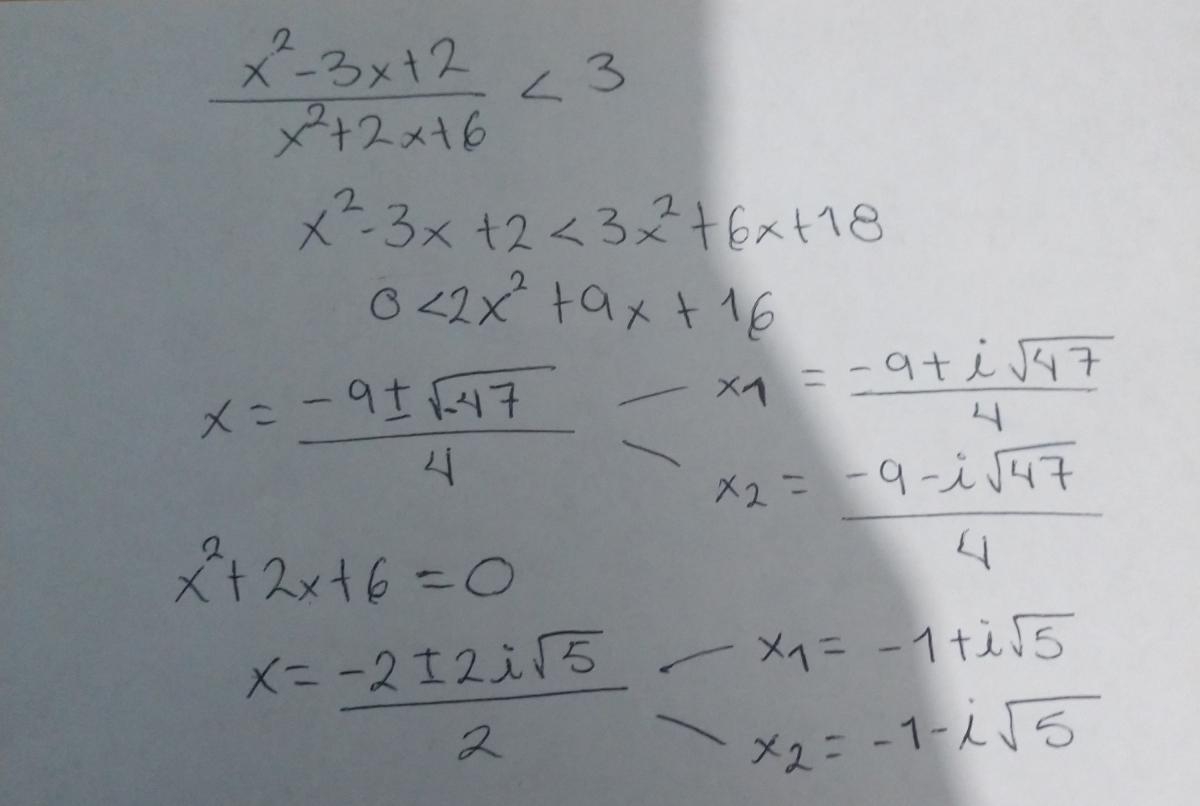 x²-3x+2 / x²+2x+6 < 3
x²-3x+2<3x²+6x+18
0<2x²+9x+16
x = (-9±√-47)/4
x1 = (-9+i√47)/4
x2 = (-9-i√47)/4
x²+2x+6=0
x = (-2±2i√5)/2
x1 = -1+i√5
x2 = -1-i√5